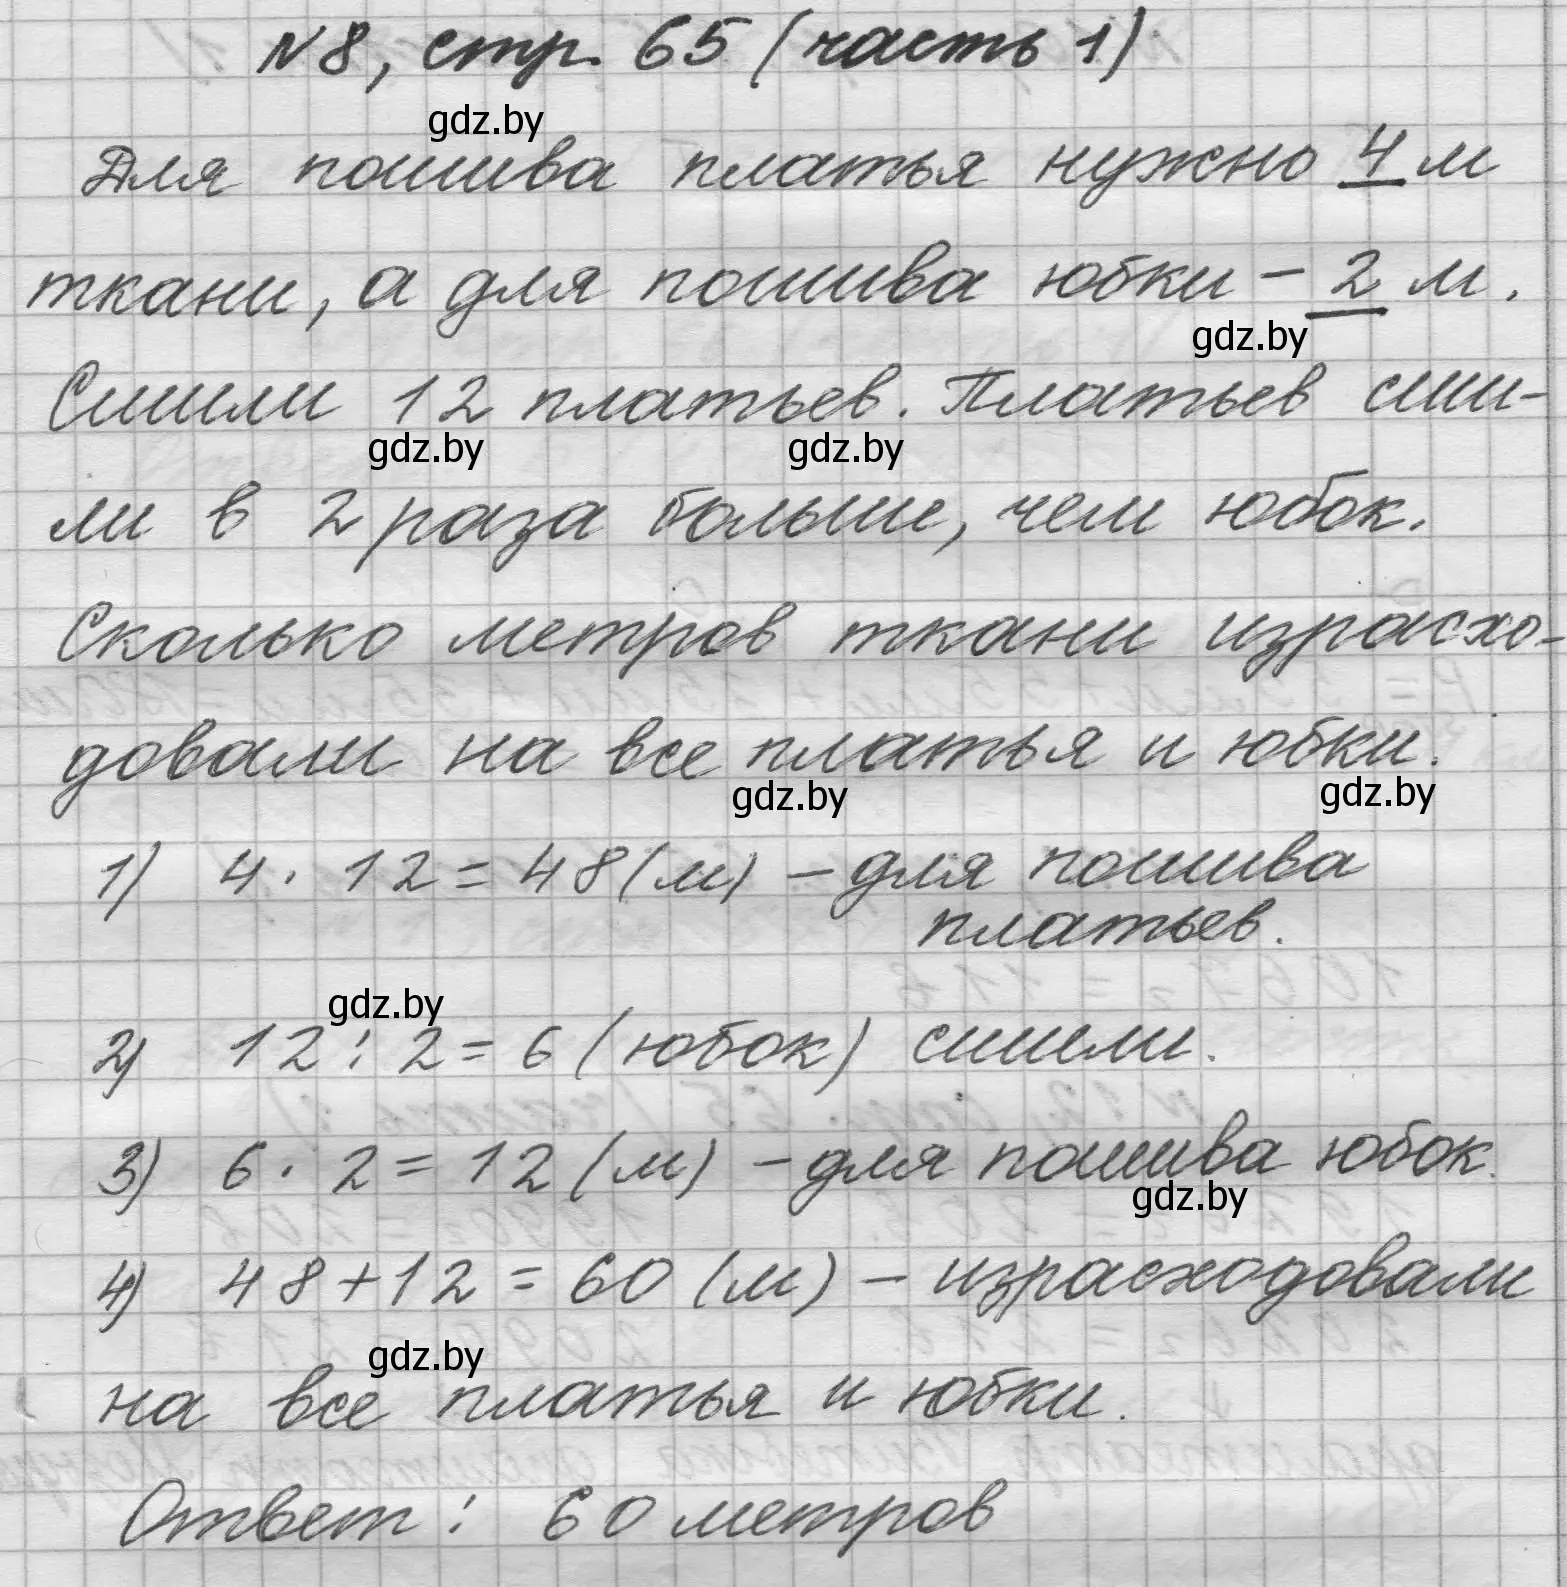 №8, стр. 65 (часть 1)
gdz.by
Для пошива платья нужно 4 м
ткани, а для пошива юбки – 2 м.
gdz.by
Сшили 12 платьев. Платьев сши-
gdz.by gdz.by
ли в 2 раза больше, чем юбок.
Сколько метров ткани израсхо-
довали на все платья и юбки.
gdz.by gdz.by
1) 4 · 12 = 48 (м) – для пошива
платьев.
gdz.by
2) 12 : 2 = 6 (юбок) сшили.
3) 6 · 2 = 12 (м) – для пошива юбок.
gdz.by
4) 48 + 12 = 60 (м) – израсходовали
gdz.by
на все платья и юбки.
Ответ: 60 метров